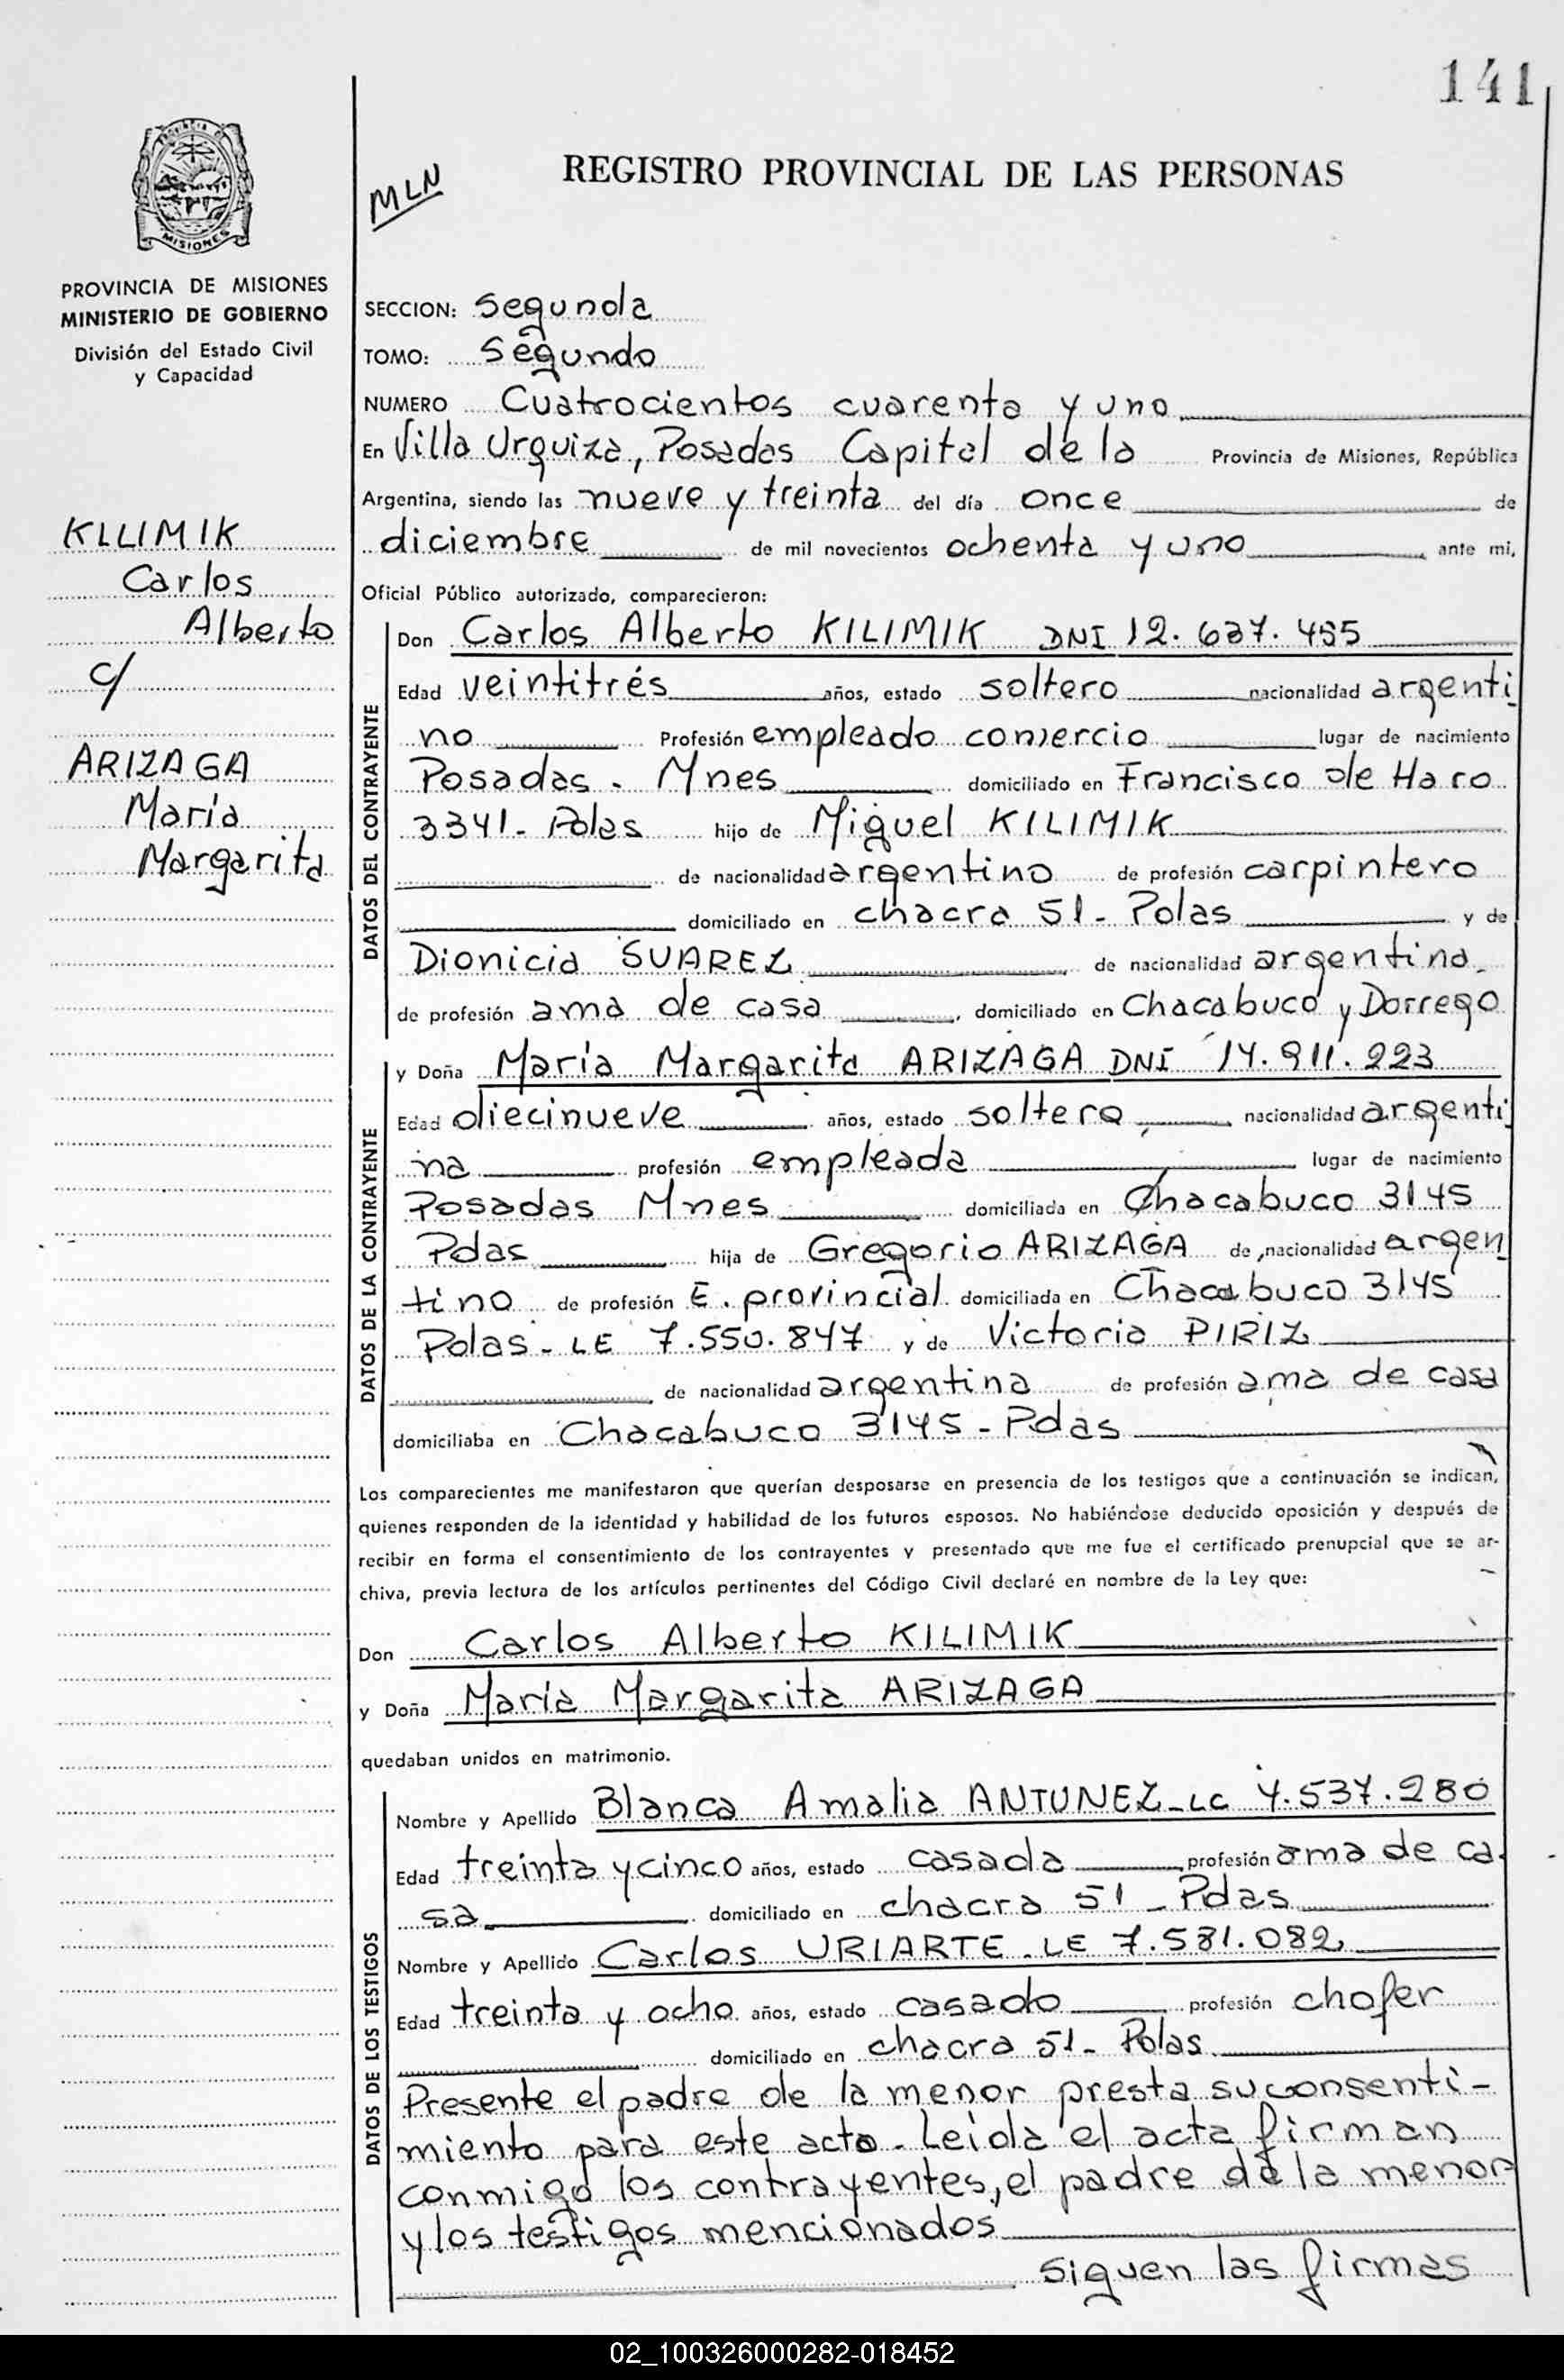 141
MLN
REGISTRO PROVINCIAL DE LAS PERSONAS
MISIONES
PROVINCIA DE MISIONES
MINISTERIO DE GOBIERNO
División del Estado Civil
y Capacidad
KLLIMIK
Carlos
Alberto
c/
ARIZAGA
María
Margarita
SECCION: Segunda
TOMO: Segundo
NUMERO Cuatrocientos cuarenta y uno
En Villa Urquiza, Posadas Capital de la Provincia de Misiones, República
Argentina, siendo las nueve y treinta del día once de
diciembre de mil novecientos ochenta y uno ante mi,
Oficial Público autorizado, comparecieron:
DATOS DEL CONTRAYENTE
Don Carlos Alberto KILIMIK DNI 12.637.455
Edad veintitrés años, estado soltero nacionalidad argenti
no Profesión empleado comercio lugar de nacimiento
Posadas - Mnes domiciliado en Francisco de Haro
3341 - Pdas hijo de Miguel KILIMIK
de nacionalidad argentino de profesión carpintero
domiciliado en chacra 51 - Pdas y de
Dionicia SUAREZ de nacionalidad argentina
de profesión ama de casa, domiciliado en Chacabuco y Dorrego
DATOS DE LA CONTRAYENTE
y Doña María Margarita ARIZAGA DNI 14.911.223
Edad diecinueve años, estado soltera, nacionalidad argenti
na profesión empleada lugar de nacimiento
Posadas Mnes domiciliada en Chacabuco 3145
Pdas hija de Gregorio ARIZAGA de nacionalidad argen
tino de profesión E. provincial domiciliada en Chacabuco 3145
Pdas - LE 7.550.847 y de Victoria PIRIZ
de nacionalidad argentina de profesión ama de casa
domiciliaba en Chacabuco 3145 - Pdas
Los comparecientes me manifestaron que querían desposarse en presencia de los testigos que a continuación se indican,
quienes responden de la identidad y habilidad de los futuros esposos. No habiéndose deducido oposición y después de
recibir en forma el consentimiento de los contrayentes y presentado que me fue el certificado prenupcial que se ar-
chiva, previa lectura de los artículos pertinentes del Código Civil declaré en nombre de la Ley que:
Don Carlos Alberto KILIMIK
y Doña María Margarita ARIZAGA
quedaban unidos en matrimonio.
DATOS DE LOS TESTIGOS
Nombre y Apellido Blanca Amalia ANTUNEZ - LC 4.537.280
Edad treinta y cinco años, estado casada profesión ama de ca
sa domiciliado en chacra 51 - Pdas
Nombre y Apellido Carlos URIARTE - LE 7.581.082
Edad treinta y ocho años, estado casado profesión chofer
domiciliado en chacra 51 - Pdas
Presente el padre de la menor presta su consenti-
miento para este acto. Leida el acta firman
conmigo los contrayentes, el padre de la menor
y los testigos mencionados
siguen las firmas
02_100326000282-018452